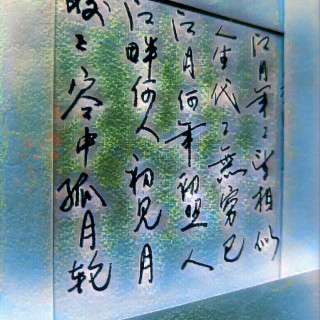 江月年々望相似
人生代々無窮已
江月何年初照人
江畔何人初見月
皎々空中孤月輪